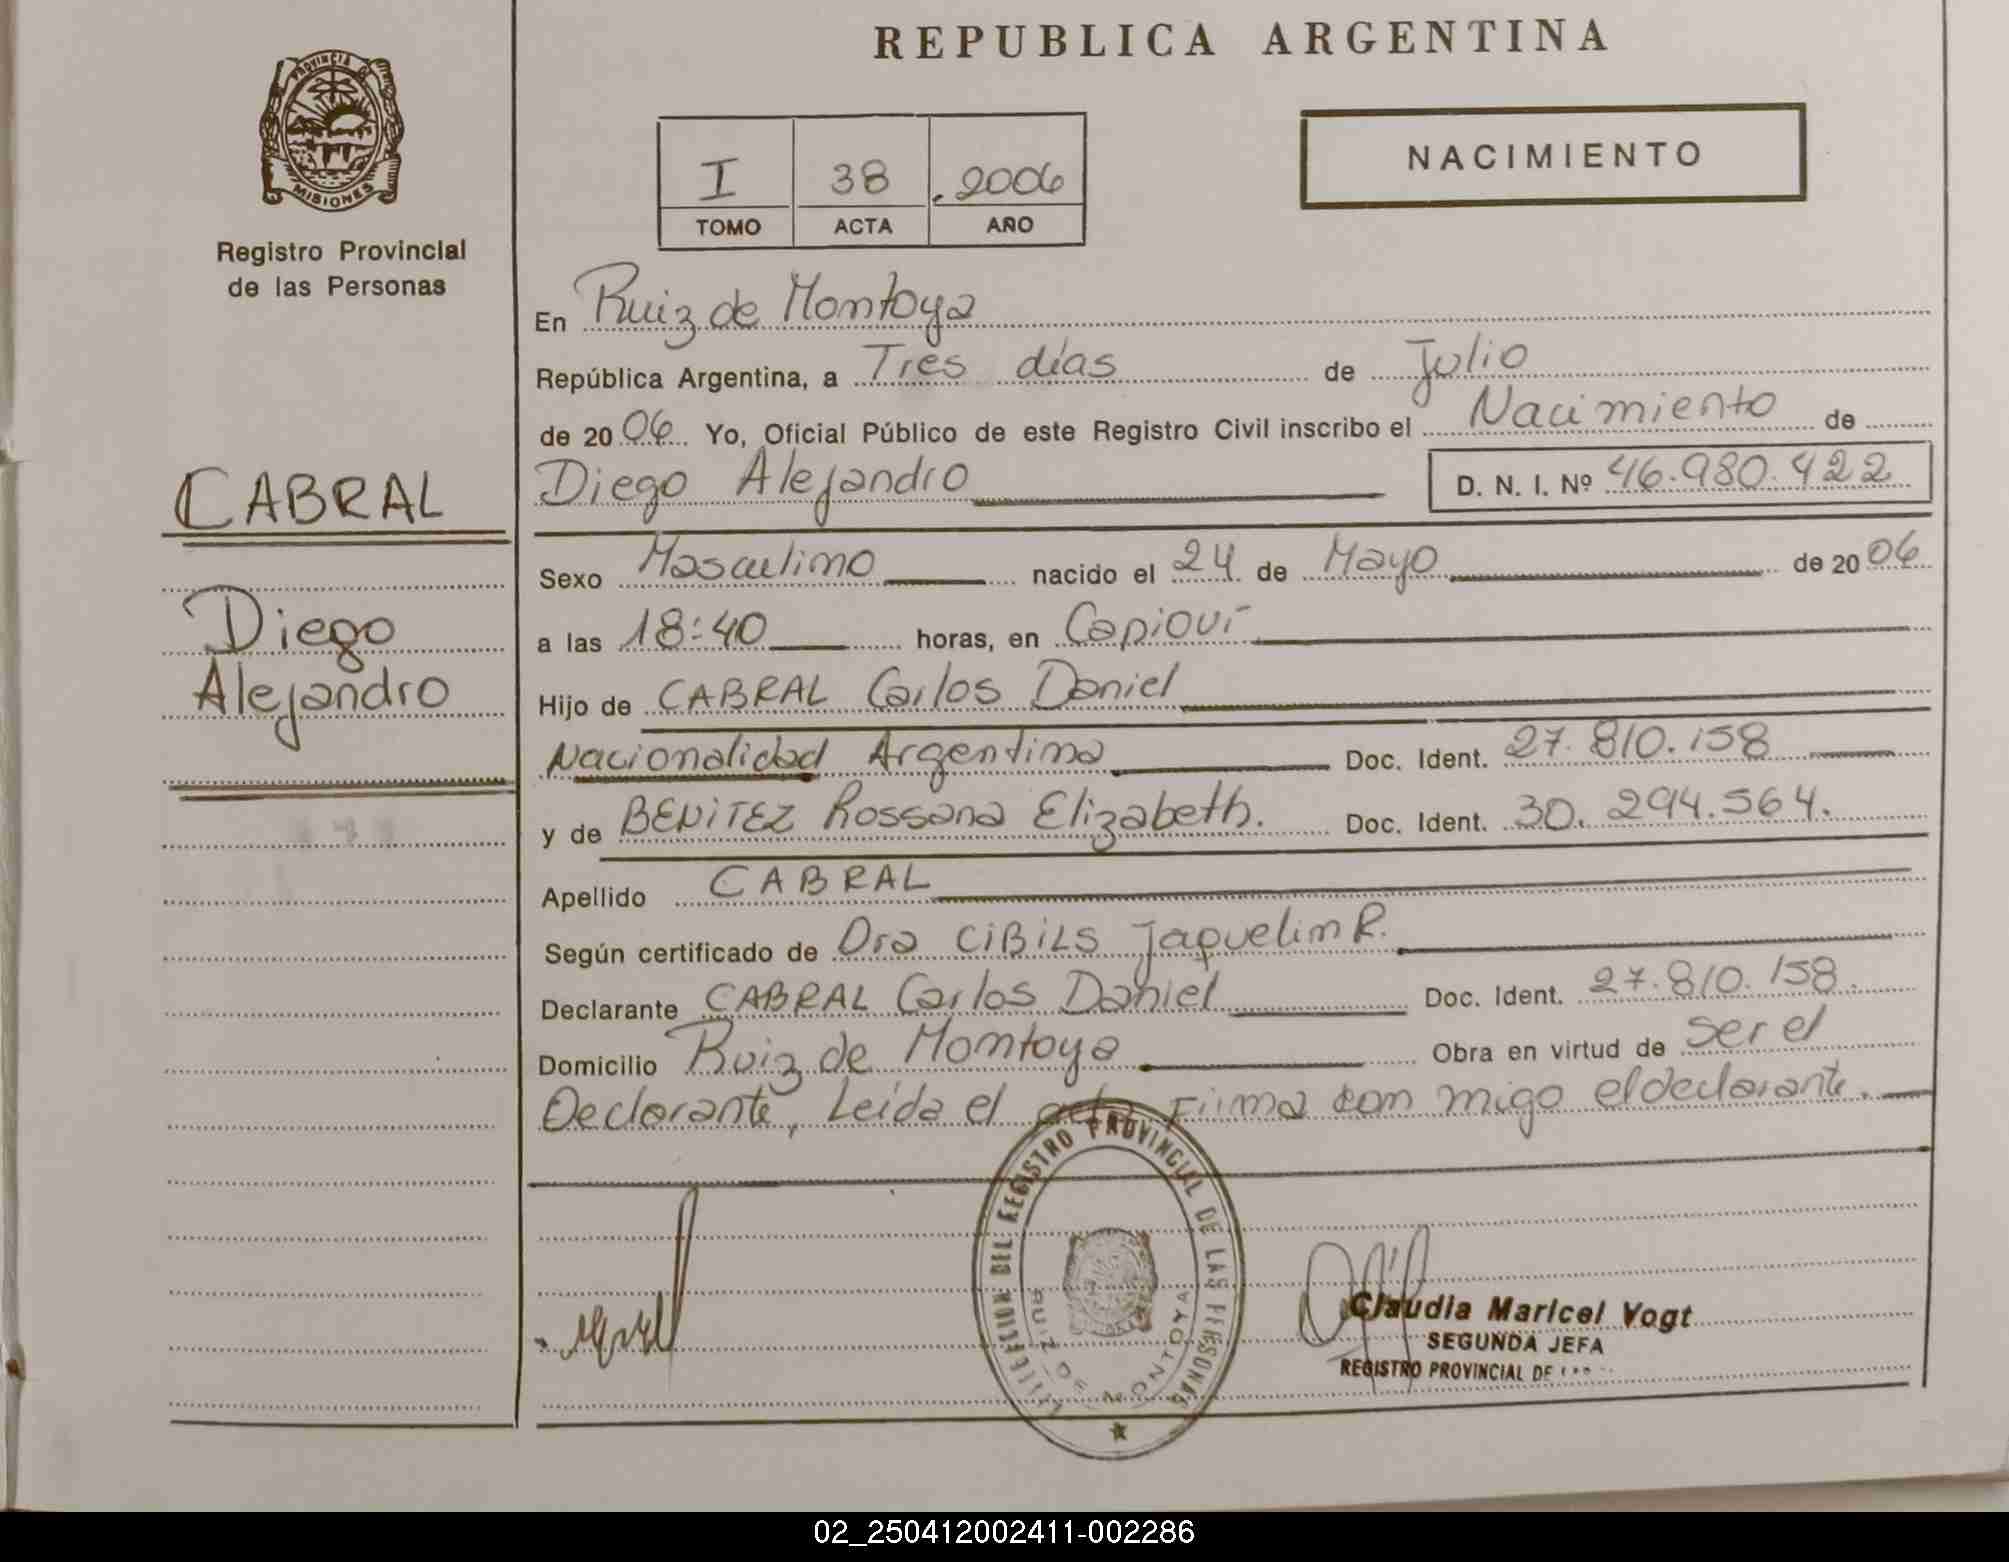 REPUBLICA ARGENTINA
PROVINCIA DE
MISIONES
Registro Provincial
de las Personas
I 38 .2006
TOMO ACTA AÑO
NACIMIENTO
En Ruiz de Montoya
República Argentina, a Tres días de Julio
de 20 06 Yo, Oficial Público de este Registro Civil inscribo el Nacimiento de
CABRAL
Diego Alejandro D. N. I. Nº 46.980.422
Sexo Masculino nacido el 24 de Mayo de 20 06
Diego
a las 18:40 horas, en Capioví
Alejandro
Hijo de CABRAL Carlos Daniel
Nacionalidad Argentina Doc. Ident. 27.810.158
y de BENiTEZ Rossana Elizabeth. Doc. Ident. 30.294.564.
Apellido CABRAL
Según certificado de Dra CiBiLS Jaquelin R.
Declarante CABRAL Carlos Daniel Doc. Ident. 27.810.158.
Domicilio Ruiz de Montoya Obra en virtud de ser el
Declarante, Leída el acta Firma con migo el declarante.
DEL REGISTRO PROVINCIAL DE LAS PERSONAS
RUIZ DE MONTOYA
Claudia Maricel Vogt
SEGUNDA JEFA
REGISTRO PROVINCIAL DE
02_250412002411-002286